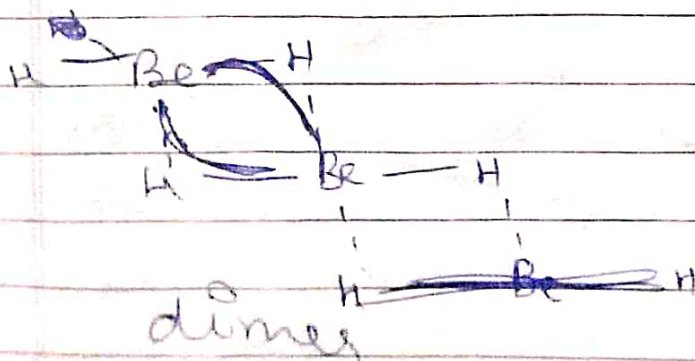 H Be H
H Be H
H Be H
dimer